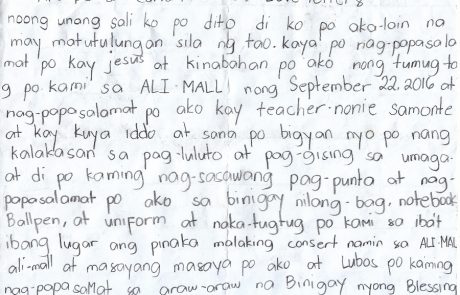 noong unang sali ko po dito di ko po aka-lain na
may matutulungan sila ng tao. kaya' po nag-papasala
mat po kay jesus at kinabahan po ako nong tumug-to
g po kami sa ALI-MALL nong September 22, 2016 at
nag-papasalamat po ako kay teacher-nonie samonte
at kay kuya iddo at sana po bigyan nyo po nang
kalakasan sa pag-luluto at pag-gising sa umaga.
at di po kaming nag-sasawang pag-punta at nag-
papasalamat po ako sa binigay nilang-bag, notebook
Ballpen, at uniform at naka-tugtug po kami sa ibat
ibang lugar ang pinaka malaking consert namin sa ALI-MAL
ali-mall at masayang masaya po ako at Lubos po kaming
nag-papasaMat sa araw-araw na Binigay nyong Blessing